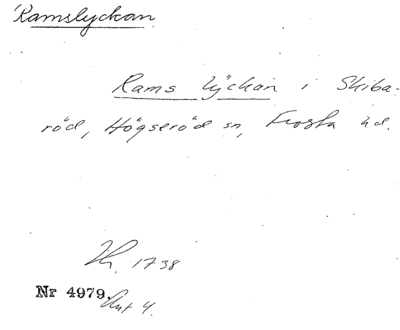 Ramslyckan
Rams lÿckan i Skiba-
röd, Högseröd sn, Frosta hd.
1738
Nr 4979.
4.